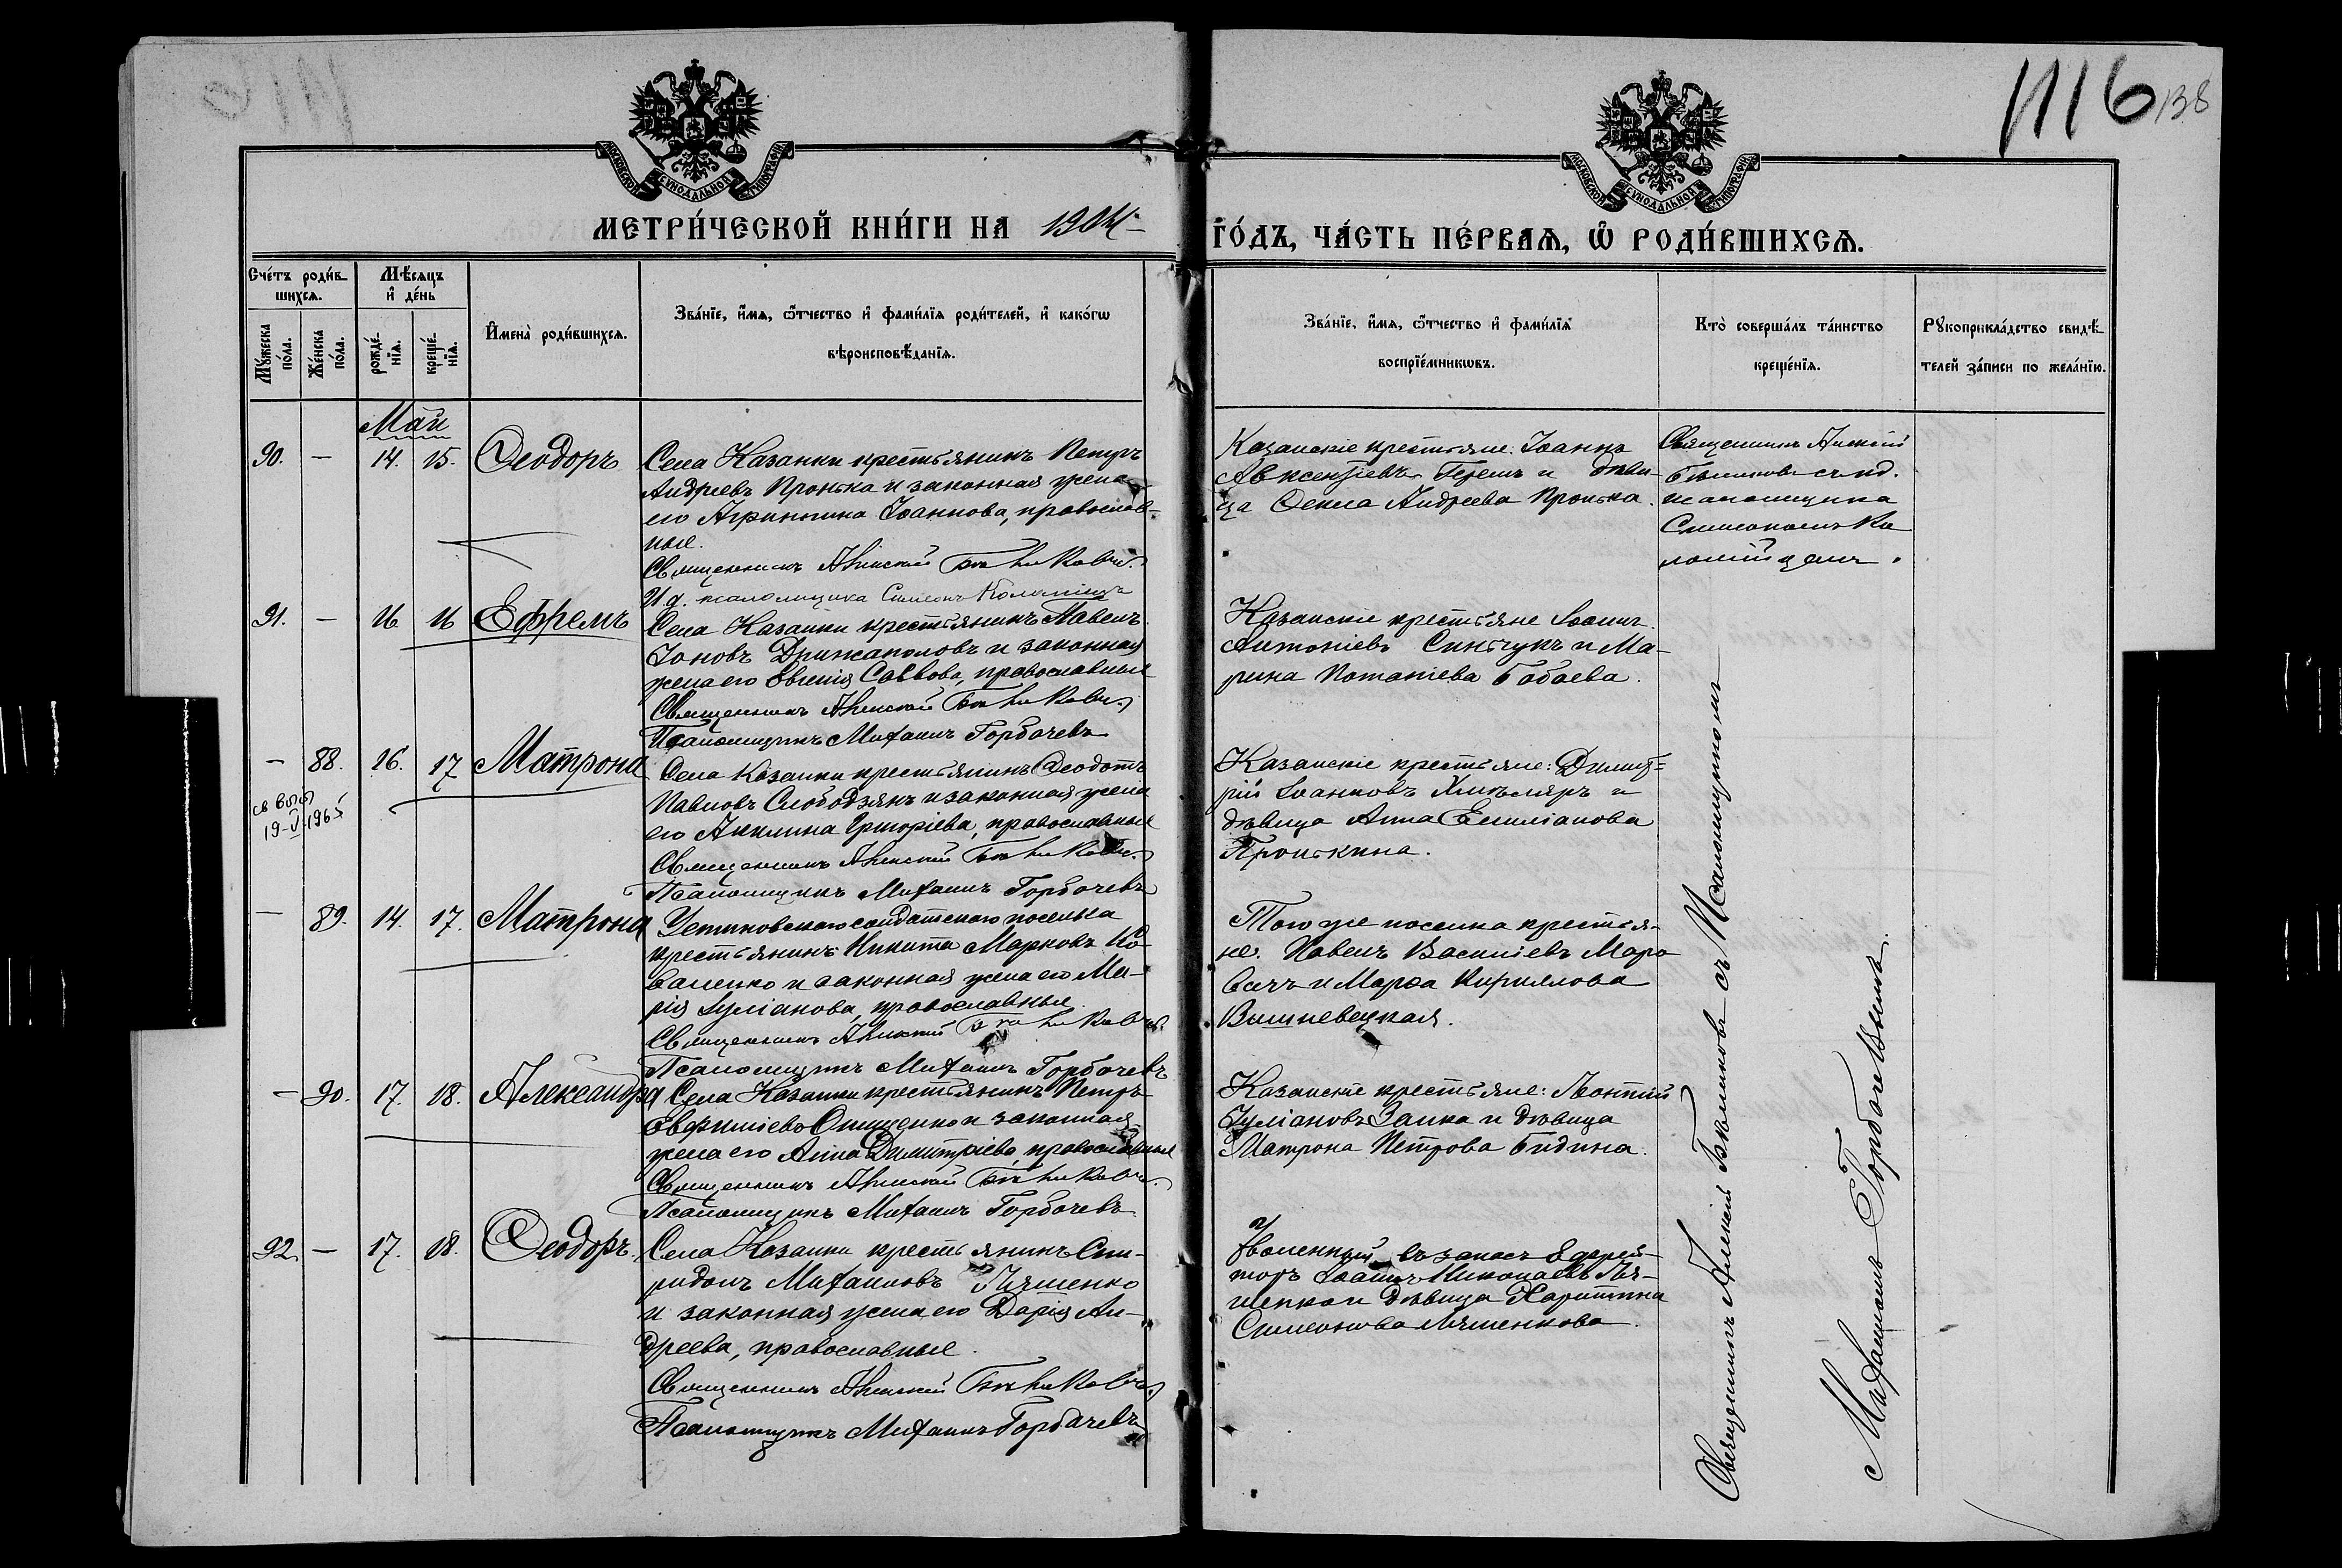 1116
138
МОСКОВСКОЙ СУНОДАЛЬНОЙ ТИПОГРАФІИ
МОСКОВСКОЙ СУНОДАЛЬНОЙ ТИПОГРАФІИ
МЕТРИ́ЧЕСКОЙ КНИ́ГИ НА 1904
ГО́ДЪ, ЧА́СТЬ ПЕ́РВАѦ, Ѡ҆ РОДИ́ВШИХСѦ.
Сче́тъ роди́в
шихсѧ.
Мѣ́сяцъ
и҆ де́нь
Мꙋ́жеска
по́ла.
Же́нска
по́ла.
рожде́
нїѧ.
креще́
нїѧ.
И҆мена̀ роди́вшихсѧ.
Зва́нїе, и҆́мѧ, ѻ҆́тчество и҆ фами́лїѧ роди́телей, и҆ како́гѡ
вѣроисповѣ́данїѧ.
Зва́нїе, и҆́мѧ, ѻ҆́тчество и҆ фами́лїѧ
воспрїе́мникѡвъ.
Кто̀ соверша́лъ та́инство
креще́нїѧ.
Рꙋкоприкла́дство свидѣ́
телей за́писи по жела́нїю.
Май
90. — 14. 15. Ѳеодоръ
Села Казанки крестьянинъ Петръ
Андреевъ Пронька и законная жена
его Агриппина Іоаннова, православ-
ные.
Священникъ Алексій
И д. псаломщика Симеонъ Коломіецъ
Казанскіе крестьяне: Іоаннъ
Авксентіевъ и дѣви-
ца Ѳекла Андреева Пронька.
Священникъ Алексій
съ и.д.
псаломщика
Симеономъ Ко
ломійцемъ.
91. — 16 16 Ефремъ
Села Казанки крестьянинъ Павелъ
Іоновъ Држаполовъ и законная
жена его Евгенія Саввова, православные
Священникъ Алексій
Псаломщикъ Михаилъ Горбачевъ
Казанскіе крестьяне Іоаннъ
Антоніевъ Синьчукъ и Ма-
рина Потапіева Бабаева.
— 88. 16. 17 Матрона
св выд
19-V-1965
Села Казанки крестьянинъ Ѳеодотъ
Павловъ Слободзянъ и законная жена
его Акилина Григоріева, православные
Священникъ Алексій
Псаломщикъ Михаилъ Горбачевъ
Казанскіе крестьяне: Димит-
рій Іоанновъ и
дѣвица Анна Емиліанова
Пронькина.
— 89. 14. 17. Матрона
Устиновскаго солдатскаго поселка
крестьянинъ Никита Марковъ Ко-
валенко и законная жена его Ма-
рія Іуліанова, православные.
Священникъ Алексій
Псаломщикъ Михаилъ Горбачевъ
Того же поселка крестья-
не: Павелъ Василіевъ
и Марѳа Кириллова
Вишневецкая.
— 90. 17. 18. Александра
Села Казанки крестьянинъ Петръ
Евфиміевъ Онищенко и законная
жена его Анна Димитріева, православные
Священникъ Алексій
Псаломщикъ Михаилъ Горбачевъ
Казанскіе крестьяне: Леонтій
Іуліановъ Заика и дѣвица
Матрона Петрова Бидина.
92. — 17. 18. Ѳеодоръ.
Села Казанки крестьянинъ Спи-
ридонъ Михаиловъ Ляшенко
и законная жена его Дарія Ан-
дреева, православные.
Священникъ Алексій
Псаломщикъ Михаилъ Горбачевъ
Уволенный въ запасъ Ефрей-
торъ Іоаннъ Николаевъ Ля-
шенко и дѣвица Харитина
Симеонова Ляшенкова.
Священникъ Алексій съ Псаломщикомъ
Михаиломъ Горбачевымъ.